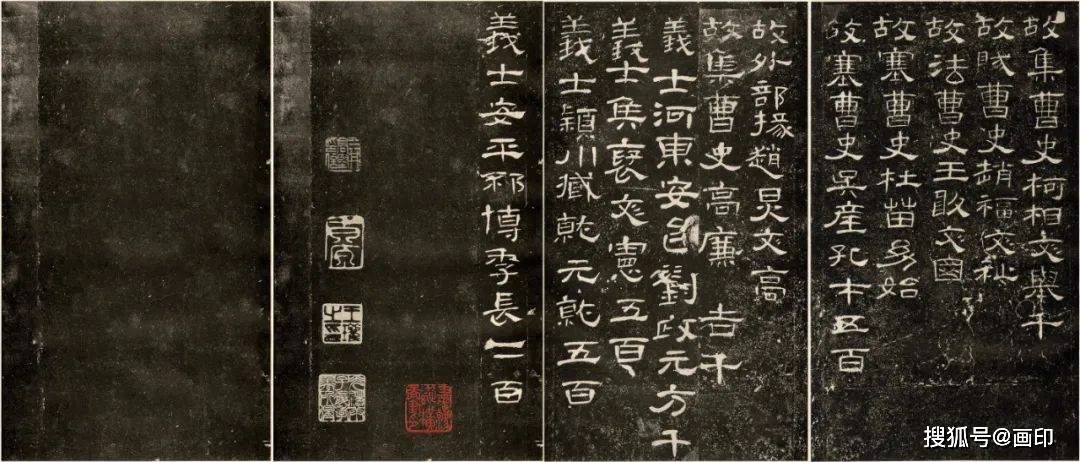 故集曹史柯相文舉千
故賊曹史趙福文祉
故法曹史王敢文國
故塞曹史杜苗幼始
故塞曹史吳產孔才五百
故外部掾趙炅文高
故集曹史高廉吉千
義士河東安邑劉政元方千
義士侯褒文憲五百
義士潁川臧就元就五百
義士安平祁博季長二百
搜狐号@画印